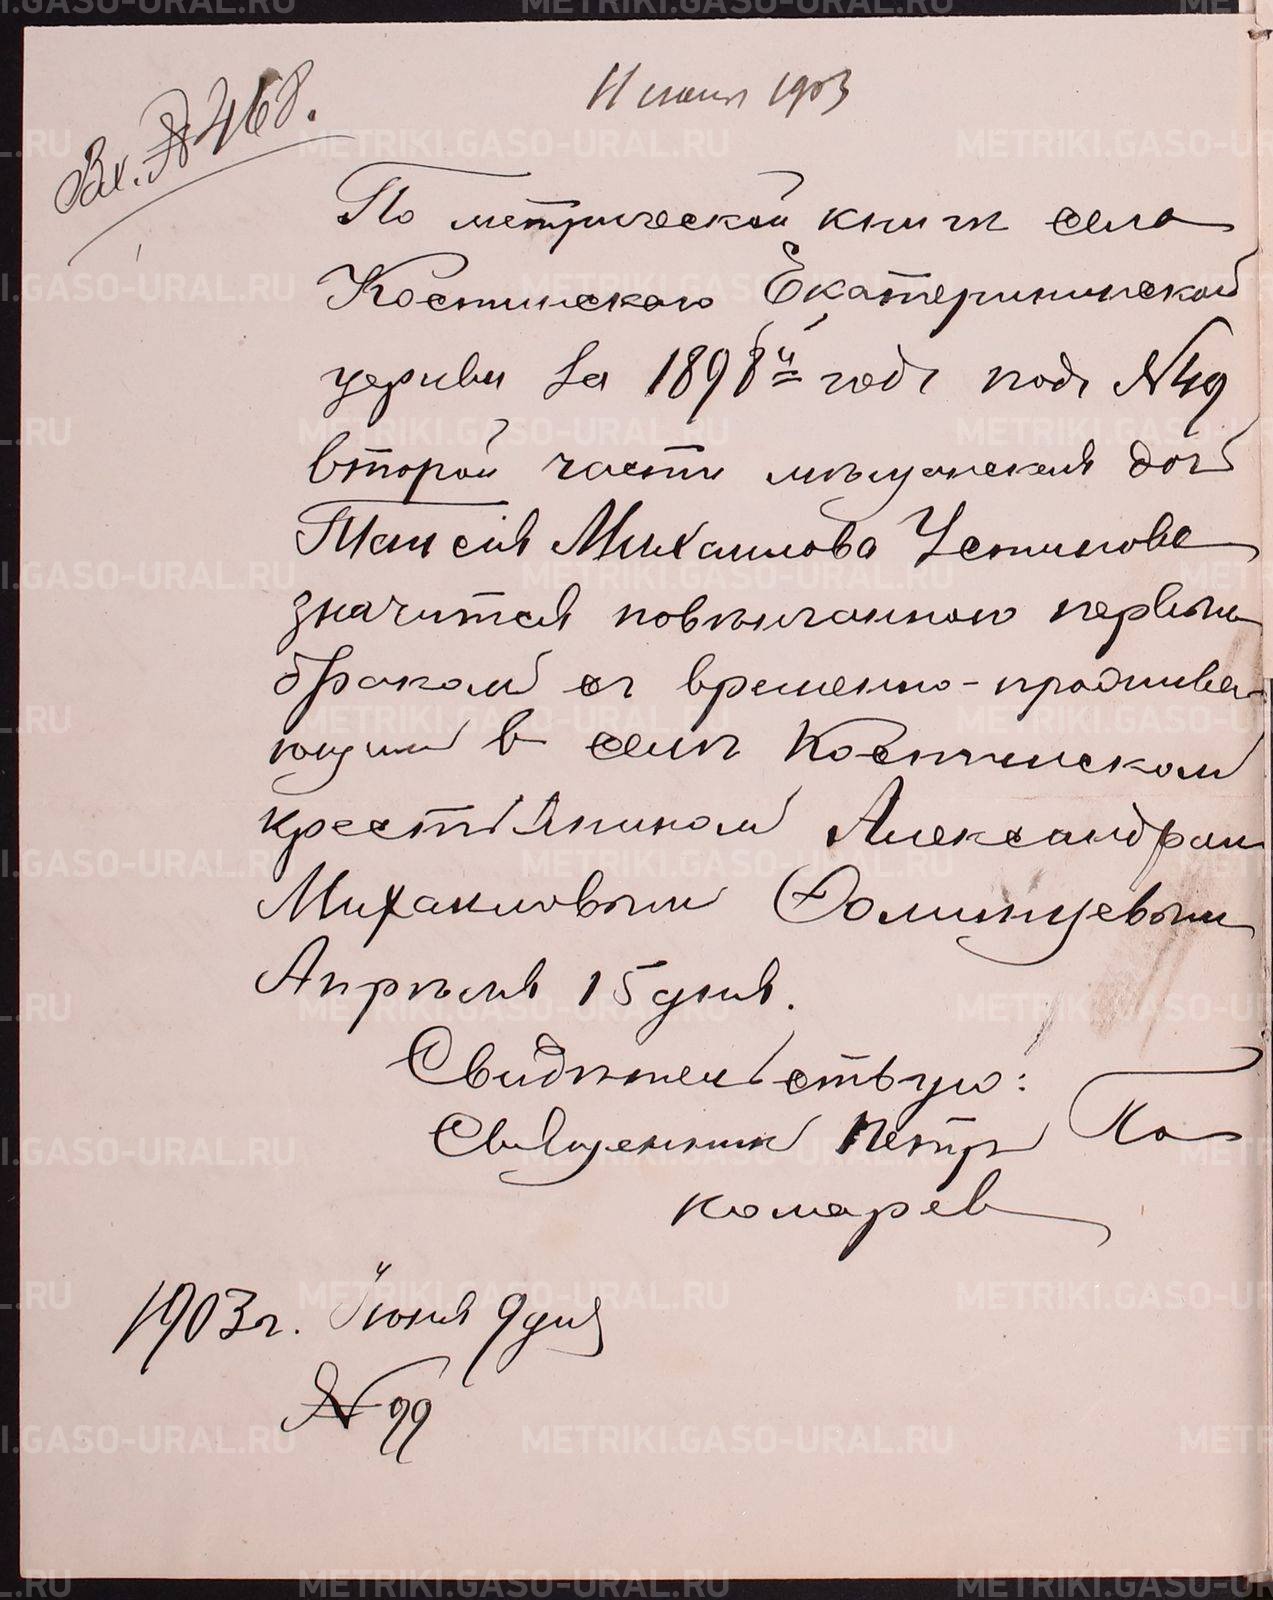 Вх. № 468.
11 июня 1903
По метрической книги села
Костинскаго Екатерининской
церкви за 1898й годъ подъ №49
второй части мѣщанская дочь
Таисія Михаилова Устинова
значится повѣнчанною первымъ
бракомъ съ временно-прожива-
ющимъ в селѣ Костинскомъ
крестьяниномъ Александромъ
Михаиловымъ Фоминцевымъ
Апрѣля 15 дня.
Свидѣтельствую:
Священникъ Петръ По-
номарев
1903 г. Іюня 9 дня
№ 99
METRIKI.GASO-URAL.RU